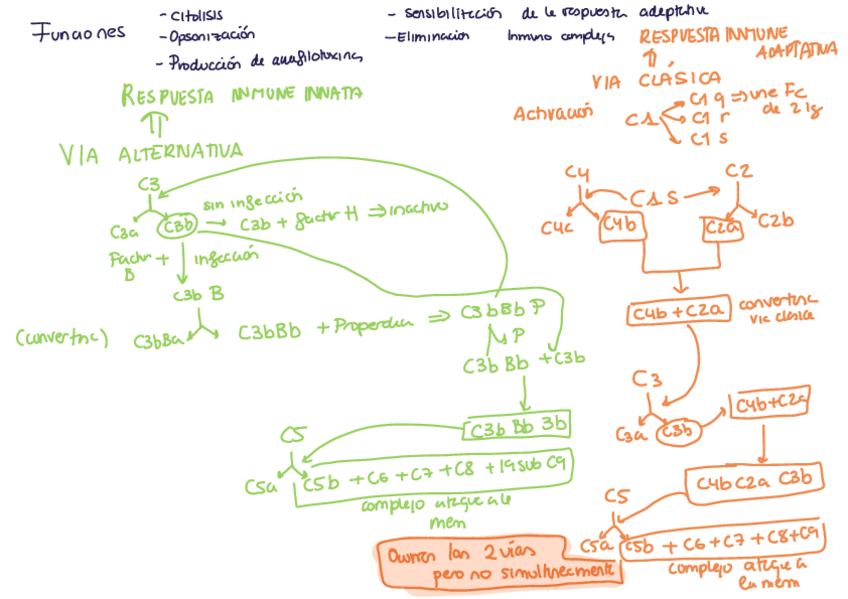 Funciones
- Citolisis
- Opsonización
- Producción de anafilotoxinas
- Sensibilización de la respuesta adaptativa
- Eliminación Inmuno complejos
RESPUESTA INMUNE INNATA
VIA ALTERNATIVA
C3
C3a
C3b
sin infección
→ C3b + factor H ⇒ inactivo
Factor B +
infección
C3b B
(convertasa)
C3bBa
C3bBb + Properdina ⇒ C3bBb P
P
C3b Bb + C3b
C3b Bb 3b
C5
C5a
C5b + C6 + C7 + C8 + 19 sub C9
complejo ataque a la
mem
RESPUESTA INMUNE
ADAPTATIVA
VIA CLÁSICA
Activación
C1
C1 q ⇒ une Fc
de 2 Ig
C1 r
C1 s
C4
C1 S
C2
C4c
C4b
C2a
C2b
C4b + C2a
convertasa
via clasica
C3
C3a
C3b
C4b+C2a
C4b C2a C3b
C5
C5a
C5b + C6 + C7 + C8 + C9
complejo ataque a
la mem
Ocurren las 2 vías
pero no simultneamente